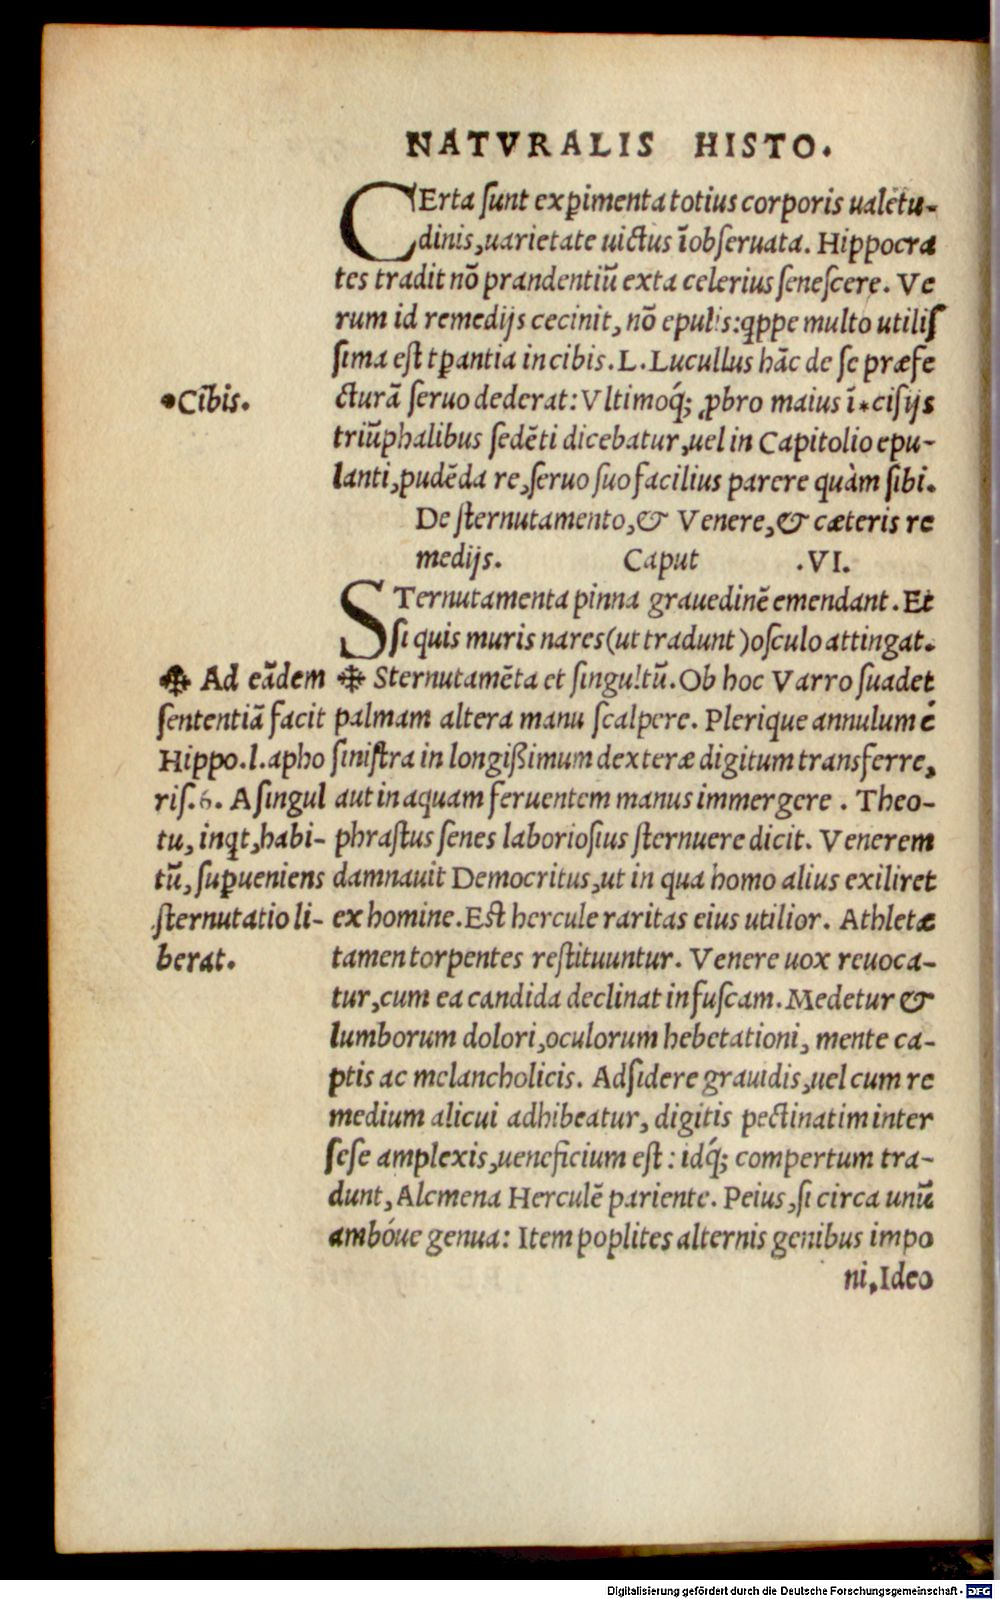 NATVRALIS HISTO.
CErta sunt exp̱imenta totius corporis ualētu-
dinis, uarietate uictus īobseruata. Hippocra
tes tradit nō prandentiū exta celerius senescere. Ve
rum id remedijs cecinit, nō epulis: qppe multo utilis
sima est tp̱antia in cibis. L. Lucullus hāc de se præfe
cturā seruo dederat: Vltimoq́; ꝓbro maius ī*cisijs
triūphalibus sedēti dicebatur, uel in Capitolio epu-
lanti, pudēda re, seruo suo facilius parere quàm sibi.
De sternutamento, & Venere, & cæteris re
medijs. Caput .VI.
STernutamenta pinna grauedinē emendant. Et
si quis muris nares (ut tradunt) osculo attingat.
❉ Sternutamēta et singultū. Ob hoc Varro suadet
palmam altera manu scalpere. Plerique annulum é
sinistra in longißimum dexteræ digitum transferre,
aut in aquam feruentem manus immergere . Theo-
phrastus senes laboriosius sternuere dicit. Venerem
damnauit Democritus, ut in qua homo alius exiliret
ex homine. Est hercule raritas eius utilior. Athletæ
tamen torpentes restituuntur. Venere uox reuoca-
tur, cum ea candida declinat in fuscam. Medetur &
lumborum dolori, oculorum hebetationi, mente ca-
ptis ac melancholicis. Adsidere grauidis, uel cum re
medium alicui adhibeatur, digitis pectinatim inter
sese amplexis, ueneficium est: idq́; compertum tra-
dunt, Alcmena Herculē pariente. Peius, si circa unū
ambóue genua: Item poplites alternis genibus impo
ni, Ideo
*Cībis.
❉ Ad eādem
sententiā facit
Hippo. l. apho
ris. 6. A singul
tu, inqt, habi-
tū, sup̱ueniens
sternutatio li-
berat.
Digitalisierung gefördert durch die Deutsche Forschungsgemeinschaft - DFG